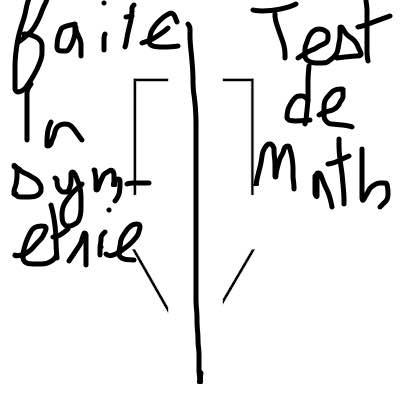 faite
in
sym-
etrie
Test
de
Math